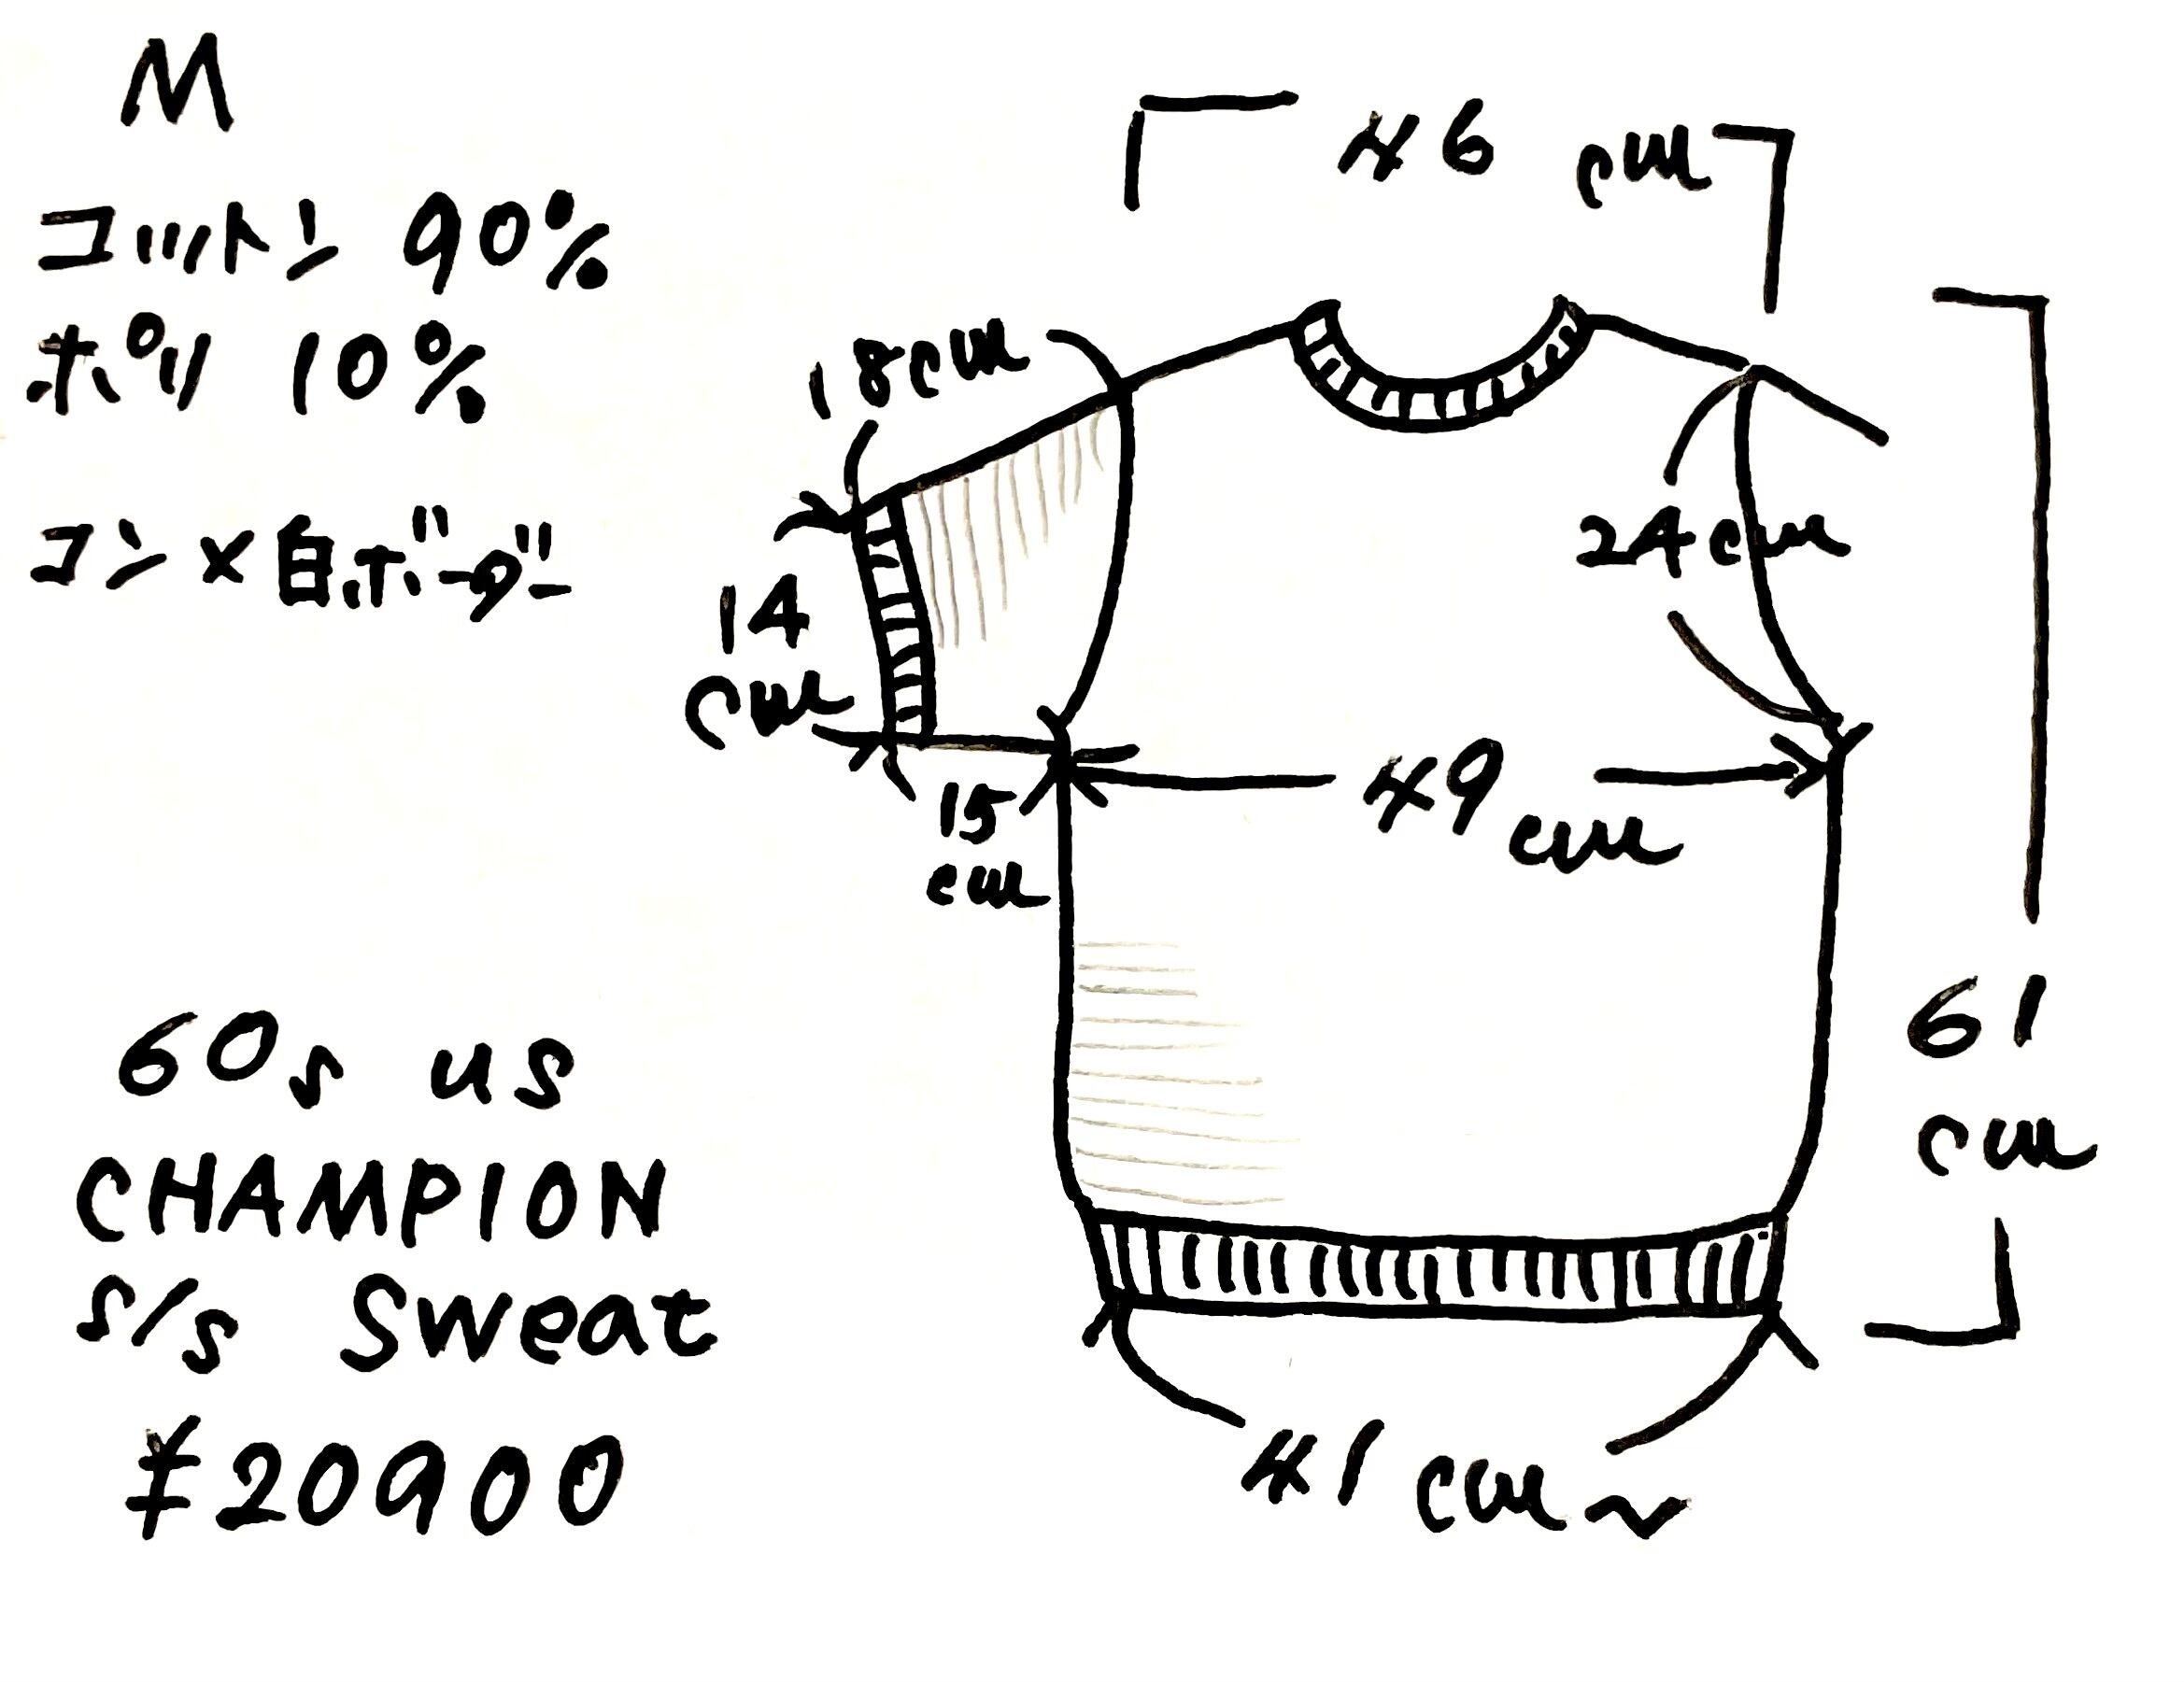 M
コットン 90%
ポリ 10%
コン×白ボーダー
60s us
CHAMPION
s/s sweat
¥20900
46 cm
18cm
14
cm
15
cm
24cm
49
cm
61
cm
41 cm~